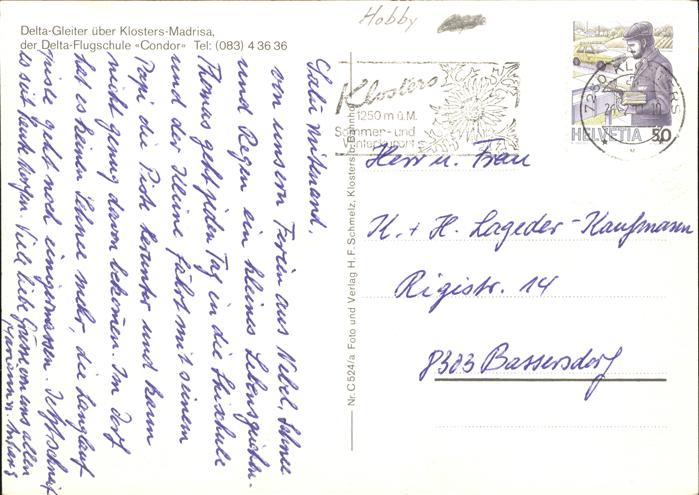 Hobby
Delta-Gleiter über Klosters-Madrisa,
der Delta-Flugschule «Condor» Tel: (083) 4 36 36
Klosters
1250 m ü.M.
Sommer- und
Winterkurort
7250 KLOSTERS
HELVETIA 50
Salü mitenand.
von unsern Ferien aus Nebel, Schnee
und Regen ein kleines Lebenszeichen.
Thomas geht jeden Tag in die Skischule
und der Kleine fährt mit seinem
Papi die Piste herunter und kann
nicht genug davon bekommen. Im Dorf
hat es keinen Schnee mehr, die Langlauf
piste geht noch einigermassen. Jetzt schneit
es seit heute morgen. Viele liebe Grüsse von uns allen
Nr. C 524/a Foto und Verlag H. F. Schmelz, Klosters b. Bahnhof
Herr u. Frau
K. + H. Lageder-Kaufmann
Rigistr. 14
8303 Bassersdorf